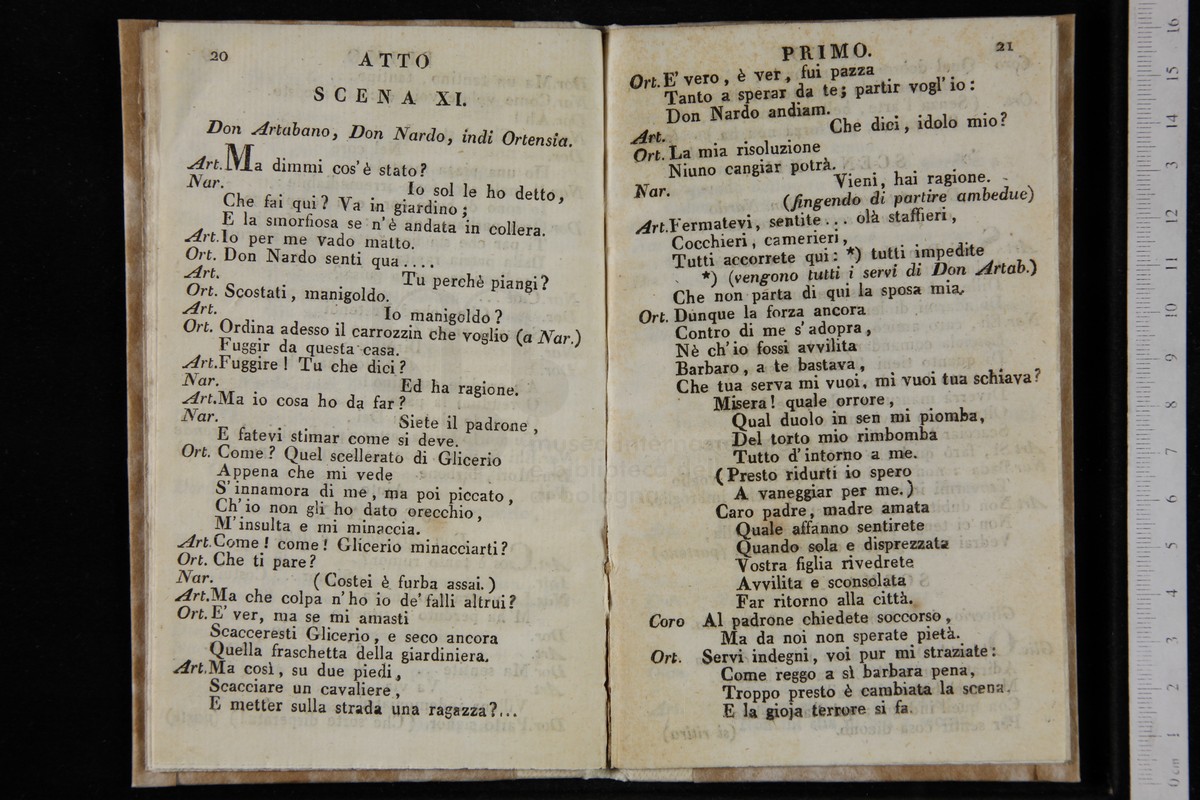 20
ATTO
SCENA XI.
Don Artabano, Don Nardo, indi Ortensia.
Art. Ma dimmi cos' è stato?
Nar. Io sol le ho detto,
Che fai qui? Va in giardino;
E la smorfiosa se n' è andata in collera.
Art. Io per me vado matto.
Ort. Don Nardo senti qua....
Art. Tu perchè piangi?
Ort. Scostati, manigoldo.
Art. Io manigoldo?
Ort. Ordina adesso il carrozzin che voglio (a Nar.)
Fuggir da questa casa.
Art. Fuggire! Tu che dici?
Nar. Ed ha ragione.
Art. Ma io cosa ho da far?
Nar. Siete il padrone,
E fatevi stimar come si deve.
Ort. Come? Quel scellerato di Glicerio
Appena che mi vede
S' innamora di me, ma poi piccato,
Ch' io non gli ho dato orecchio,
M' insulta e mi minaccia.
Art. Come! come! Glicerio minacciarti?
Ort. Che ti pare?
Nar. (Costei è furba assai.)
Art. Ma che colpa n' ho io de' falli altrui?
Ort. E' ver, ma se mi amasti
Scacceresti Glicerio, e seco ancora
Quella fraschetta della giardiniera.
Art. Ma così, su due piedi,
Scacciare un cavaliere,
E metter sulla strada una ragazza?...
PRIMO.
21
Ort. E' vero, è ver, fui pazza
Tanto a sperar da te; partir vogl' io:
Don Nardo andiam.
Art. Che dici, idolo mio?
Ort. La mia risoluzione
Niuno cangiar potrà.
Nar. Vieni, hai ragione.
(fingendo di partire ambedue)
Art. Fermatevi, sentite... olà staffieri,
Cocchieri, camerieri,
Tutti accorrete qui: *) tutti impedite
*) (vengono tutti i servi di Don Artab.)
Che non parta di qui la sposa mia.
Ort. Dunque la forza ancora
Contro di me s' adopra,
Nè ch' io fossi avvilita
Barbaro, a te bastava,
Che tua serva mi vuoi, mi vuoi tua schiava?
Misera! quale orrore,
Qual duolo in sen mi piomba,
Del torto mio rimbomba
Tutto d' intorno a me.
(Presto ridurti io spero
A vaneggiar per me.)
Caro padre, madre amata
Quale affanno sentirete
Quando sola e disprezzata
Vostra figlia rivedrete
Avvilita e sconsolata
Far ritorno alla città.
Coro Al padrone chiedete soccorso,
Ma da noi non sperate pietà.
Ort. Servi indegni, voi pur mi straziate:
Come reggo a sì barbara pena,
Troppo presto è cambiata la scena.
E la gioja terrore si fa.